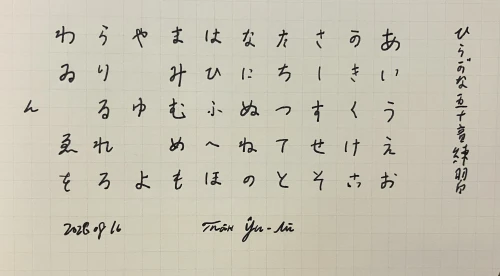 ひらがな五十音練習
あいうえお
かきくけこ
さしすせそ
たちつてと
なにぬねの
はひふへほ
まみむめも
やゆよ
らりるれろ
わゐゑを
ん